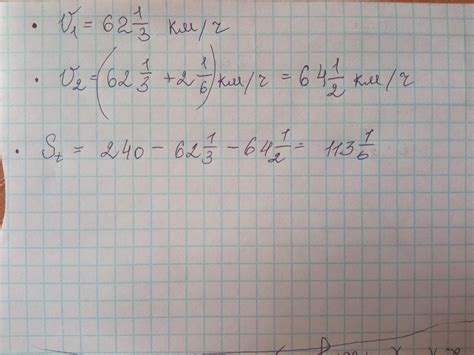 • V₁ = 62 1/3 км/ч
• V₂ = (62 1/3 + 2 1/6) км/ч = 64 1/2 км/ч
• S₂ = 240 - 62 1/3 - 64 1/2 = 113 1/6